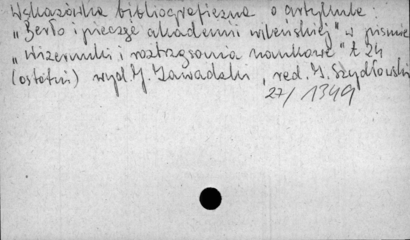 Wskazówka bibliograficzna o artykule
"Berło i pieczęć akademii wileńskiej" w piśmie
"Wizerunki i roztrząsania naukowe" t. 24
(ostatni) wyd. J. Zawadzki, red. I. Szydłowski
27/1349